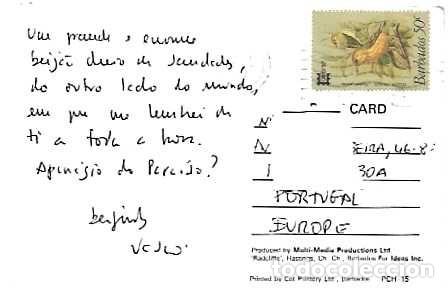 Um grande e enorme
beijão cheio de saudades,
do outro lado do mundo,
em que me lembrei de
ti a toda a hora.
do Paraíso?
Barbados 50c
CARD
30A
PORTUGAL
EUROPE
Produced by Multi-Media Productions Ltd
'Radcliffe', Hastings, Ch. Ch., Barbados For Ideas Inc.
Printed by Cot Printery Ltd., Barbados PCH 15
todocoleccion